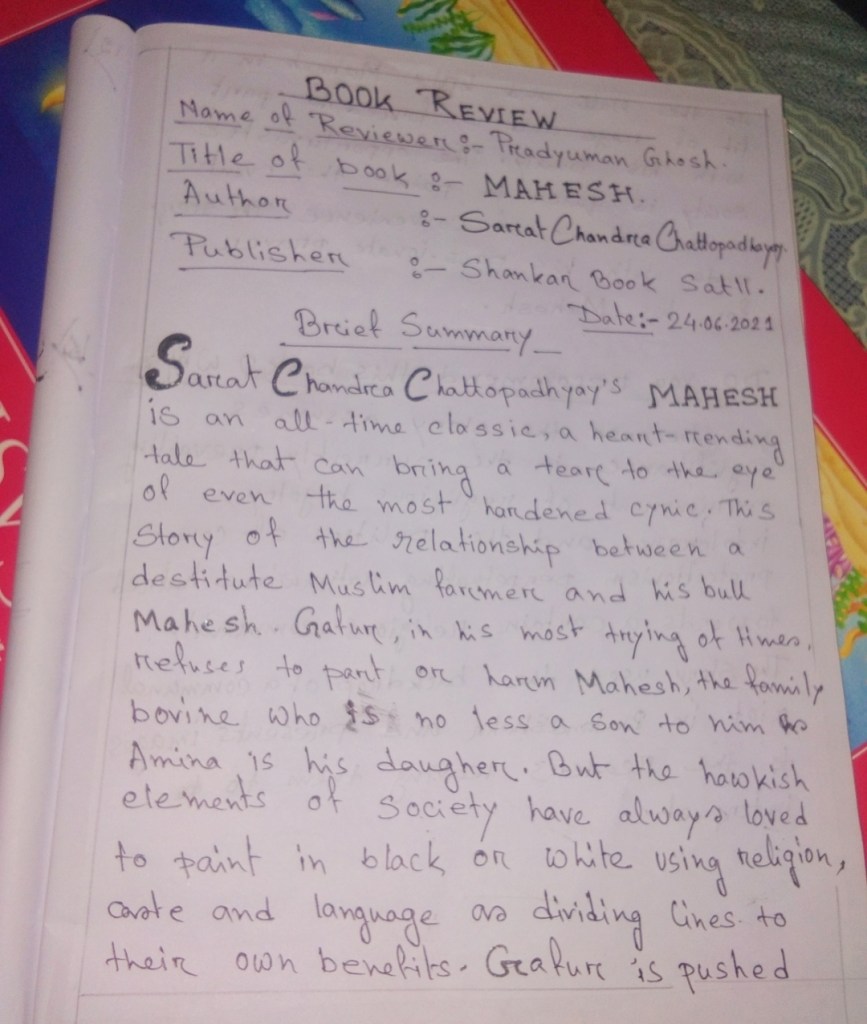 BOOK REVIEW
Name of Reviewer :- Pradyuman Ghosh.
Title of book :- MAHESH.
Author :- Sarat Chandra Chattopadhyay
Publisher :- Shankar Book Satll.
Date:- 24.06.2021
Brief Summary
Sarat Chandra Chattopadhyay's MAHESH
is an all-time classic, a heart-rending
tale that can bring a tear to the eye
of even the most hardened cynic. This
Story of the relationship between a
destitute Muslim farmer and his bull
Mahesh. Gafur, in his most trying of times,
refuses to part or harm Mahesh, the family
bovine who is no less a son to him as
Amina is his daugher. But the hawkish
elements of Society have always loved
to paint in black or white using religion,
caste and language as dividing lines to
their own benefits. Gafur is pushed